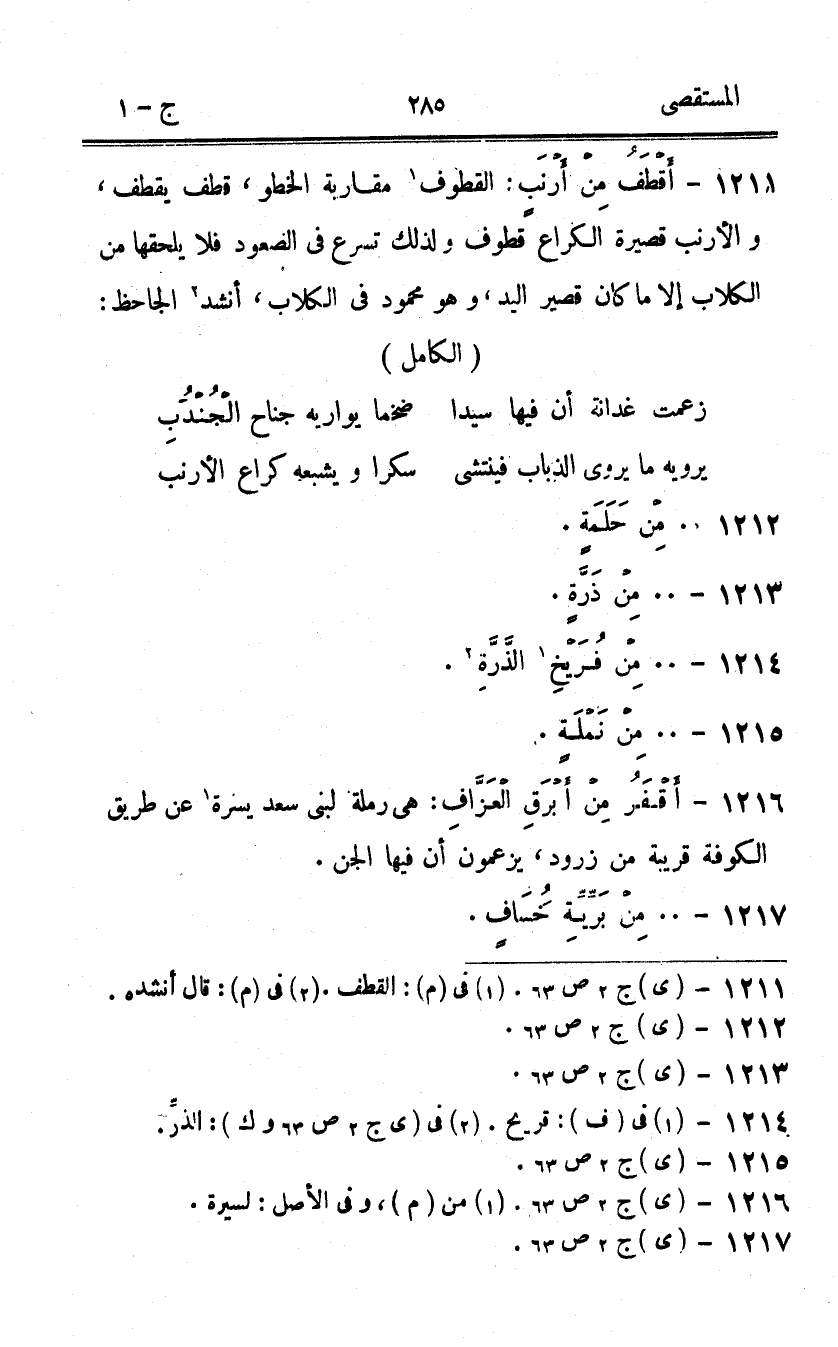 المستقصى ٢٨٥ ج - ١
١٢١١ - أَقْطَفُ مِنْ أَرْنَبٍ: القطوف١ مقاربة الخطو، قطف يقطف،
و الأرنب قصيرة الكراع قطوف ولذلك تسرع فى الصعود فلا يلحقها من
الكلاب إلا ما كان قصير اليد، و هو محمود فى الكلاب، أنشد٢ الجاحظ:
( الكامل )
زعمت غدانة أن فيها سيدا ضخما يواريه جناح الْجُنْدُبِ
يرويه ما يروى الذباب فينتشى سكرا و يشبعه كراع الأرنب
١٢١٢ ٠٠ مِنْ حَلَمَةٍ .
١٢١٣ - ٠٠ مِنْ ذَرَّةٍ .
١٢١٤ - ٠٠ مِنْ فُرَيْخِ١ الذَّرَّةِ٢ .
١٢١٥ - ٠٠ مِنْ نَمْلَةٍ .
١٢١٦ - أَقْفَرُ مِنْ أَبْرَقِ الْعَزَّافِ: هى رملة لبنى سعد يسرة١ عن طريق
الكوفة قريبة من زرود، يزعمون أن فيها الجن .
١٢١٧ - ٠٠ مِنْ بَرِّيَّةِ خُسَافٍ .
١٢١١ - (ى) ج ٢ ص ٦٣ . (١) فى (م): القطف . (٢) فى (م): قال أنشده .
١٢١٢ - (ى) ج ٢ ص ٦٣ .
١٢١٣ - (ى) ج ٢ ص ٦٣ .
١٢١٤ - (١) فى (ف): قريح . (٢) فى (ى ج ٢ ص ٦٣ و ك): الذرِّ .
١٢١٥ - (ى) ج ٢ ص ٦٣ .
١٢١٦ - (ى) ج ٢ ص ٦٣ . (١) من (م)، و فى الأصل: لسيرة .
١٢١٧ - (ى) ج ٢ ص ٦٣ .